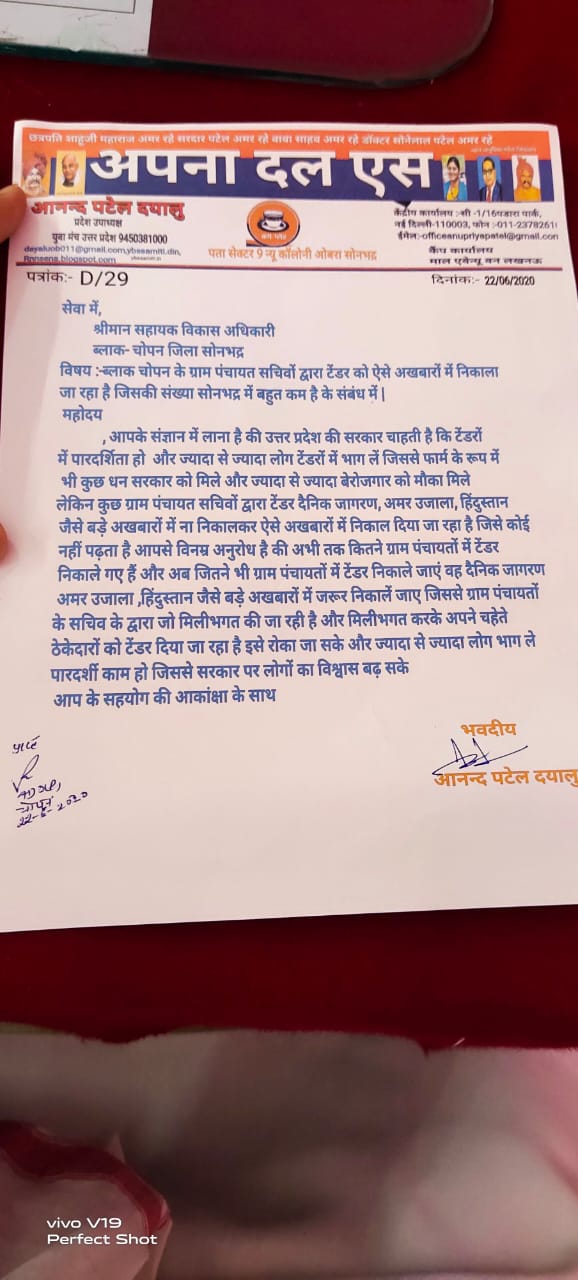 छत्रपति शाहूजी महाराज अमर रहे सरदार पटेल अमर रहे बाबा साहब अमर रहे डॉक्टर सोनेलाल पटेल अमर रहे
अपना दल एस
आनन्द पटेल दयालु
प्रदेश उपाध्यक्ष
युवा मंच उत्तर प्रदेश 9450381000
dayaluob011@gmail.com,ybssamiti.din,
Rnnsena.blogspot.com
पता सेक्टर 9 न्यू कॉलोनी ओबरा सोनभद्र
केंद्रीय कार्यालय :-सी -1/16पंडारा पार्क,
नई दिल्ली-110003, फोन :-011-2378261
ईमेल:-officeanupriyapatel@gmail.con
कैंप कार्यालय
माल एवेन्यू वन लखनऊ
पत्रांक:- D/29
दिनांक:- 22/06/2020
सेवा में,
श्रीमान सहायक विकास अधिकारी
ब्लाक- चोपन जिला सोनभद्र
विषय :-ब्लाक चोपन के ग्राम पंचायत सचिवों द्वारा टेंडर को ऐसे अखबारों में निकाला
जा रहा है जिसकी संख्या सोनभद्र में बहुत कम है के संबंध में |
महोदय
, आपके संज्ञान में लाना है की उत्तर प्रदेश की सरकार चाहती है कि टेंडरों
में पारदर्शिता हो और ज्यादा से ज्यादा लोग टेंडरों में भाग लें जिससे फार्म के रूप में
भी कुछ धन सरकार को मिले और ज्यादा से ज्यादा बेरोजगार को मौका मिले
लेकिन कुछ ग्राम पंचायत सचिवों द्वारा टेंडर दैनिक जागरण, अमर उजाला, हिंदुस्तान
जैसे बड़े अखबारों में ना निकालकर ऐसे अखबारों में निकाल दिया जा रहा है जिसे कोई
नहीं पढ़ता है आपसे विनम्र अनुरोध है की अभी तक कितने ग्राम पंचायतों में टेंडर
निकाले गए हैं और अब जितने भी ग्राम पंचायतों में टेंडर निकाले जाएं वह दैनिक जागरण
अमर उजाला ,हिंदुस्तान जैसे बड़े अखबारों में जरूर निकालें जाए जिससे ग्राम पंचायतों
के सचिव के द्वारा जो मिलीभगत की जा रही है और मिलीभगत करके अपने चहेते
ठेकेदारों को टेंडर दिया जा रहा है इसे रोका जा सके और ज्यादा से ज्यादा लोग भाग ले
पारदर्शी काम हो जिससे सरकार पर लोगों का विश्वास बढ़ सके
आप के सहयोग की आकांक्षा के साथ
भवदीय
आनन्द पटेल दयालु
चोपन
22-6-2020
vivo V19
Perfect Shot